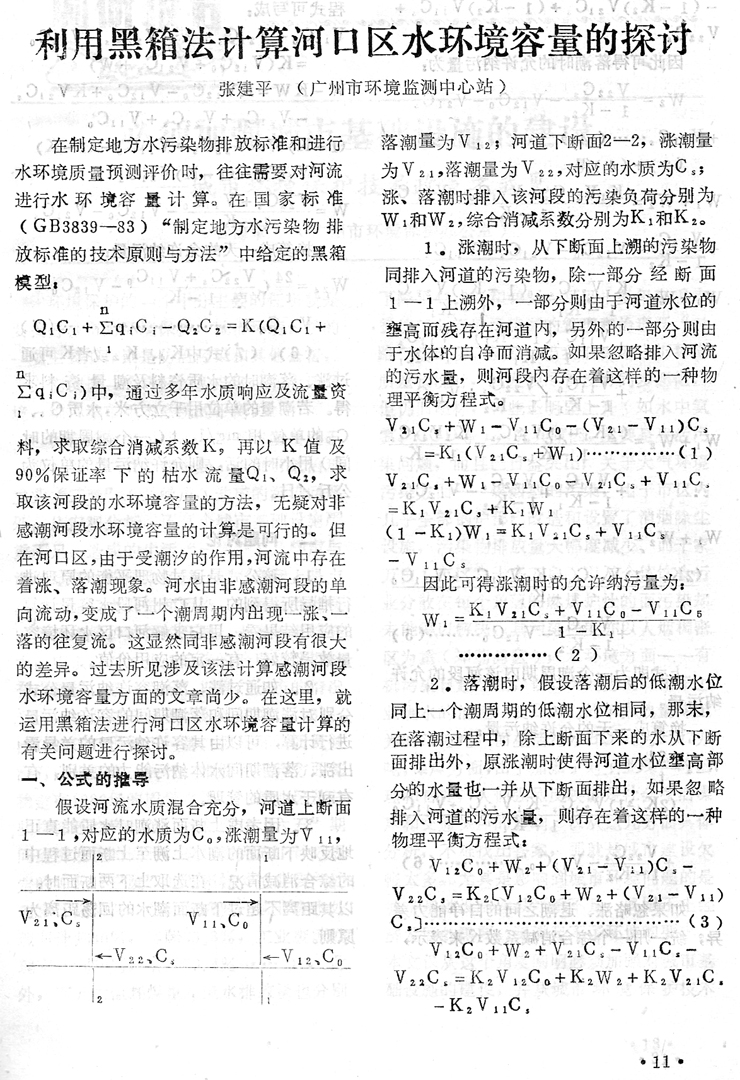 利用黑箱法计算河口区水环境容量的探讨
张建平 （广州市环境监测中心站）
在制定地方水污染物排放标准和进行
水环境质量预测评价时，往往需要对河流
进行水环境容量计算。在国家标准
（GB3839—83）“制定地方水污染物排
放标准的技术原则与方法”中给定的黑箱
模型：
n
Q₁C₁+Σq₁C₁-Q₂C₂=K(Q₁C₁+
1
n
Σq₁C₁)中，通过多年水质响应及流量资
1
料，求取综合消减系数K，再以K值及
90%保证率下的枯水流量Q₁、Q₂，求
取该河段的水环境容量的方法，无疑对非
感潮河段水环境容量的计算是可行的。但
在河口区，由于受潮汐的作用，河流中存在
着涨、落潮现象。河水由非感潮河段的单
向流动，变成了一个潮周期内出现一涨、一
落的往复流。这显然同非感潮河段有很大
的差异。过去所见涉及该法计算感潮河段
水环境容量方面的文章尚少。在这里，就
运用黑箱法进行河口区水环境容量计算的
有关问题进行探讨。
一、公式的推导
假设河流水质混合充分，河道上断面
1—1，对应的水质为C₀，涨潮量为V₁₁，
2 1
V₂₁、Cₛ V₁₁、C₀
←V₂₂、Cₛ ←V₁₂、C₀
2 1
落潮量为V₁₂；河道下断面2—2，涨潮量
为V₂₁，落潮量为V₂₂，对应的水质为Cₛ；
涨、落潮时排入该河段的污染负荷分别为
W₁和W₂，综合消减系数分别为K₁和K₂。
1．涨潮时，从下断面上溯的污染物
同排入河道的污染物，除一部分经断面
1—1上溯外，一部分则由于河道水位的
壅高而残存在河道内，另外的一部分则由
于水体的自净而消减。如果忽略排入河流
的污水量，则河段内存在着这样的一种物
理平衡方程式。
V₂₁Cₛ+W₁-V₁₁C₀-(V₂₁-V₁₁)Cₛ
=K₁(V₂₁Cₛ+W₁)……………(1)
V₂₁Cₛ+W₁-V₁₁C₀-V₂₁Cₛ+V₁₁Cₛ
=K₁V₂₁Cₛ+K₁W₁
(1-K₁)W₁=K₁V₂₁Cₛ+V₁₁C₀
-V₁₁Cₛ
因此可得涨潮时的允许纳污量为：
W₁=(K₁V₂₁Cₛ+V₁₁C₀-V₁₁Cₛ)/(1-K₁)
……………(2)
2．落潮时，假设落潮后的低潮水位
同上一个潮周期的低潮水位相同，那末，
在落潮过程中，除上断面下来的水从下断
面排出外，原涨潮时使得河道水位壅高部
分的水量也一并从下断面排出，如果忽略
排入河道的污水量，则存在着这样的一种
物理平衡方程式：
V₁₂C₀+W₂+(V₂₁-V₁₁)Cₛ-
V₂₂Cₛ=K₂[V₁₂C₀+W₂+(V₂₁-V₁₁)
Cₛ]……………………………(3)
V₁₂C₀+W₂+V₂₁Cₛ-V₁₁Cₛ-
V₂₂Cₛ=K₂V₁₂C₀+K₂W₂+K₂V₂₁Cₛ
-K₂V₁₁Cₛ
·11·